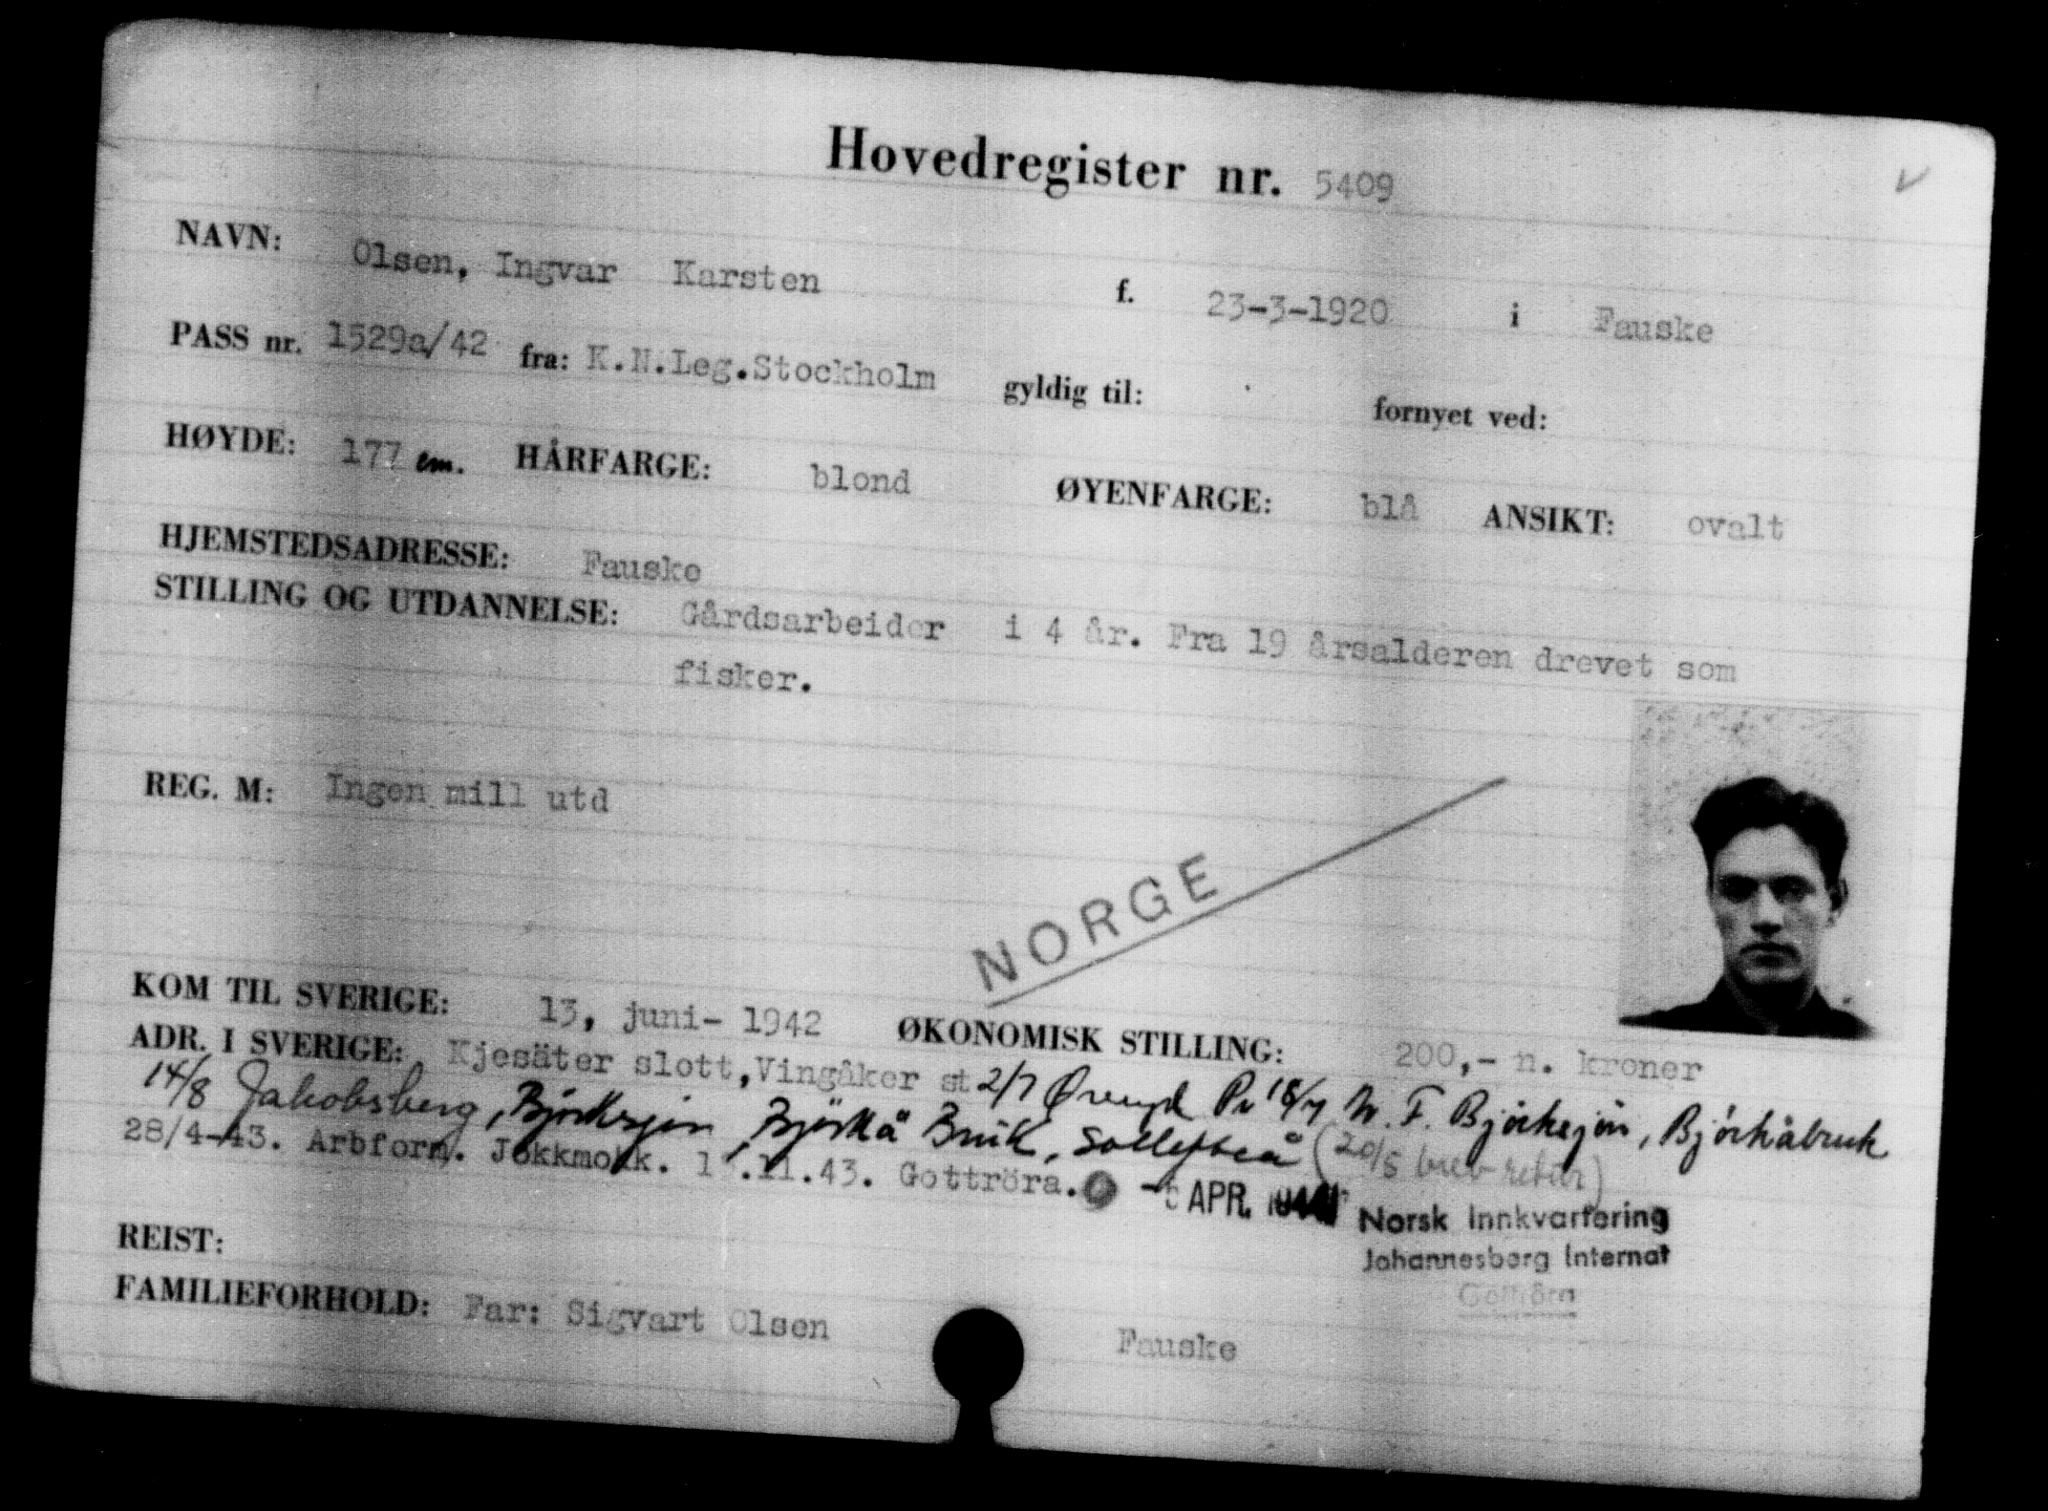 Hovedregister nr. 5409
NAVN: Olsen, Ingvar Karsten f. 23-3-1920 i Fauske
PASS nr. 1529a/42 fra: K.N.Leg.Stockholm gyldig til: fornyet ved:
HØYDE: 177 cm. HÅRFARGE: blond ØYENFARGE: blå ANSIKT: ovalt
HJEMSTEDSADRESSE: Fauske
STILLING OG UTDANNELSE: Gårdsarbeider i 4 år. Fra 19 årsalderen drevet som
fisker.
REG. M: Ingen mill utd
NORGE
KOM TIL SVERIGE: 13, juni- 1942 ØKONOMISK STILLING: 200,- n. kroner
ADR. I SVERIGE: Kjesäter slott, Vingåker st 2/7 18/7 Bjørkåbruk
14/8 Jakobsberg, Björksjön, Björkå Bruk, Sollefteå (20/5 brev retur)
28/4-43. Arbform. Jokkmokk. .11.43. Gottröra. APR.
Norsk Innkvartering
Johannesberg Internat
Gottröra
REIST:
FAMILIEFORHOLD: Far: Sigvart Olsen Fauske